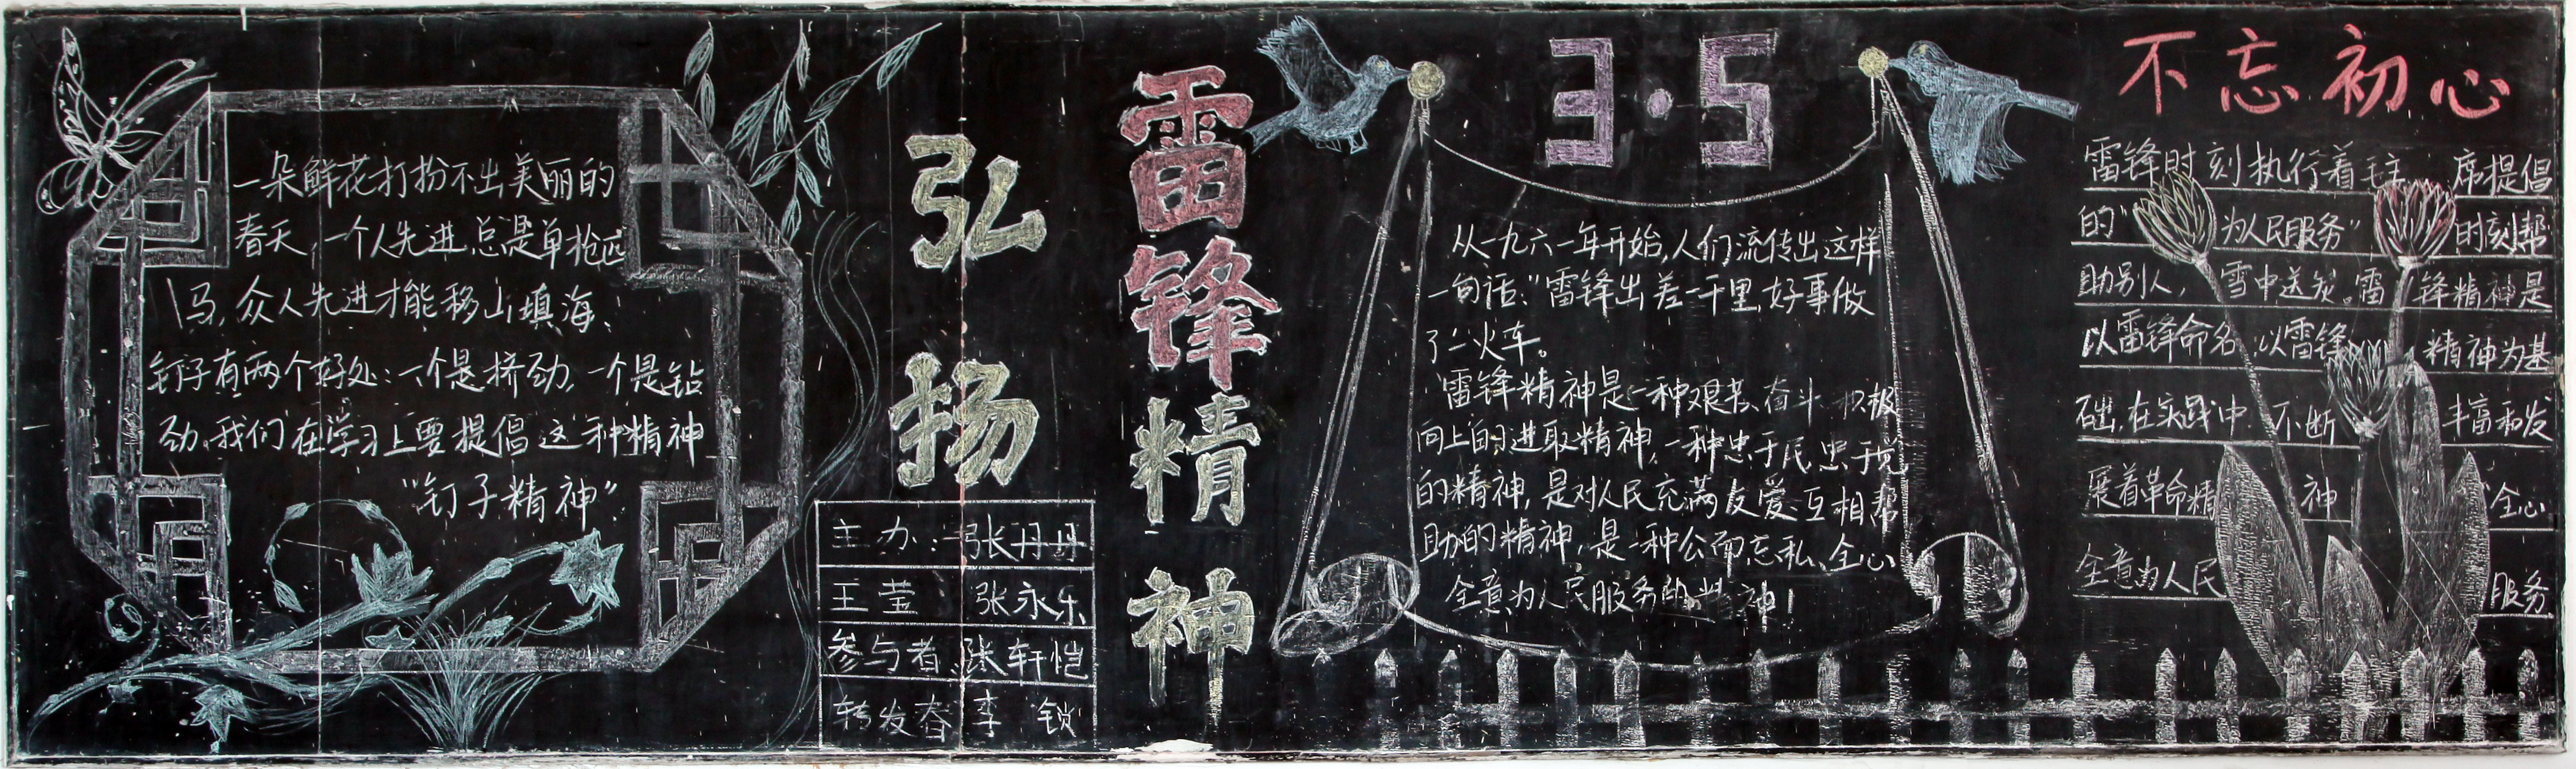 一朵鲜花打扮不出美丽的
春天,一个人先进总是单枪匹
马,众人先进才能移山填海.
钉子有两个好处:一个是挤劲,一个是钻
劲。我们在学习上要提倡这种精神
“钉子精神”
弘扬
雷锋精神
主办:张丹丹
王莹 张永乐
参与者 张轩恺
转发春 李锁
3·5
从一九六一年开始,人们流传出这样
一句话:“雷锋出差一千里,好事做
了一火车。
雷锋精神是一种艰苦、奋斗 积极
向上的进取精神,一种忠于民 忠于党
的精神,是对人民充满友爱、互相帮
助的精神,是一种公而忘私、全心
全意为人民服务的精神!
不忘初心
雷锋时刻执行着毛主席提倡
的“为人民服务”时刻帮
助别人,雪中送炭。雷锋精神是
以雷锋命名,以雷锋精神为基
础,在实践中不断丰富和发
展着革命精神 全心
全意为人民服务